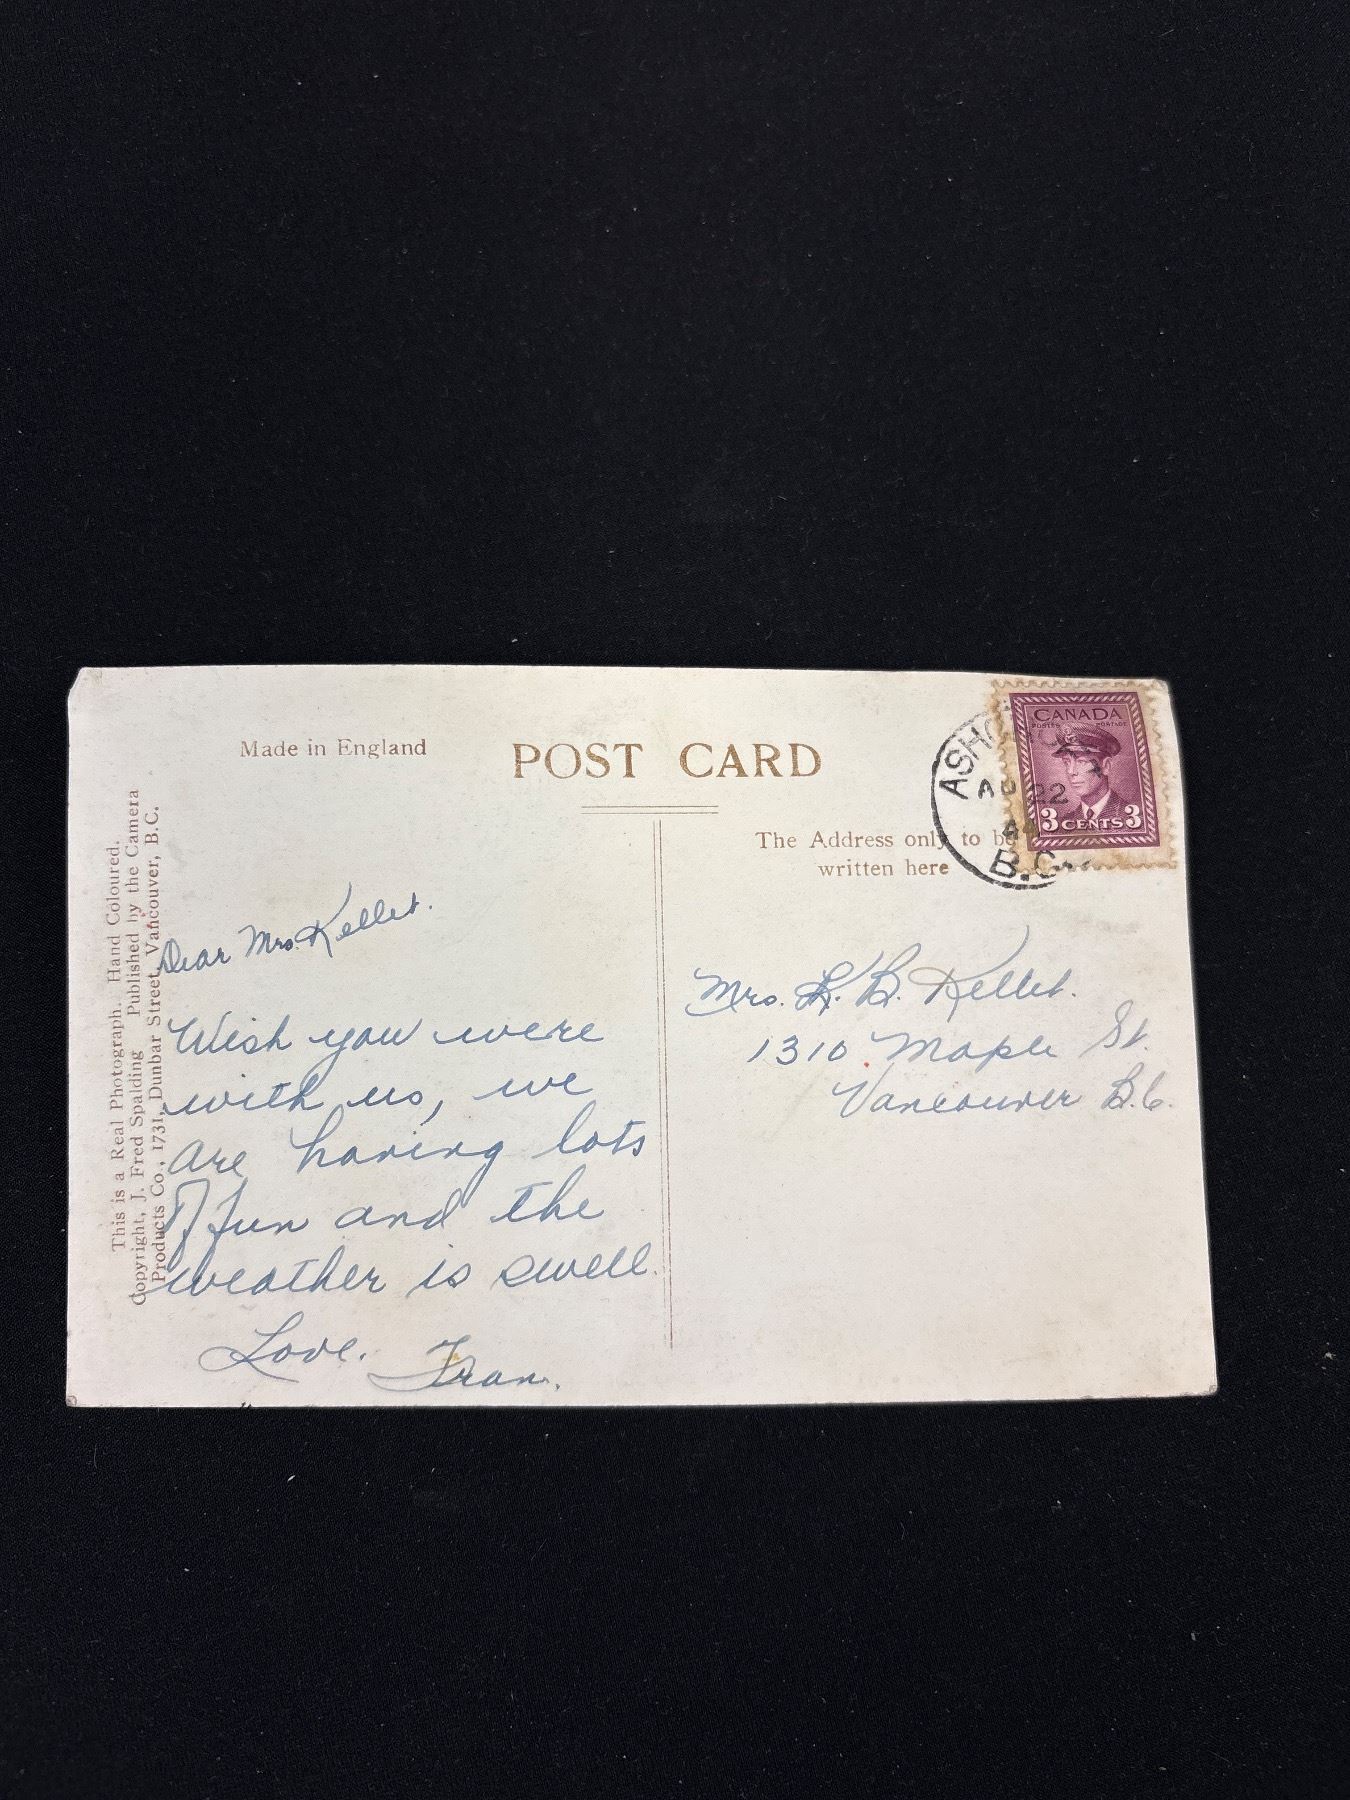 Made in England
POST CARD
The Address only to be
written here
This is a Real Photograph. Hand Coloured.
Copyright, J. Fred Spalding Published by the Camera
Products Co., 1731, Dunbar Street, Vancouver, B.C.
Dear Mrs. Kellet.
Wish you were
with us, we
are having lots
of fun and the
weather is swell.
Love. Fran.
CANADA
POSTES POSTAGE
3 CENTS 3
AU 22
B.C.
Mrs. K. B. Kellet.
1310 Maple St.
Vancouver B.C.